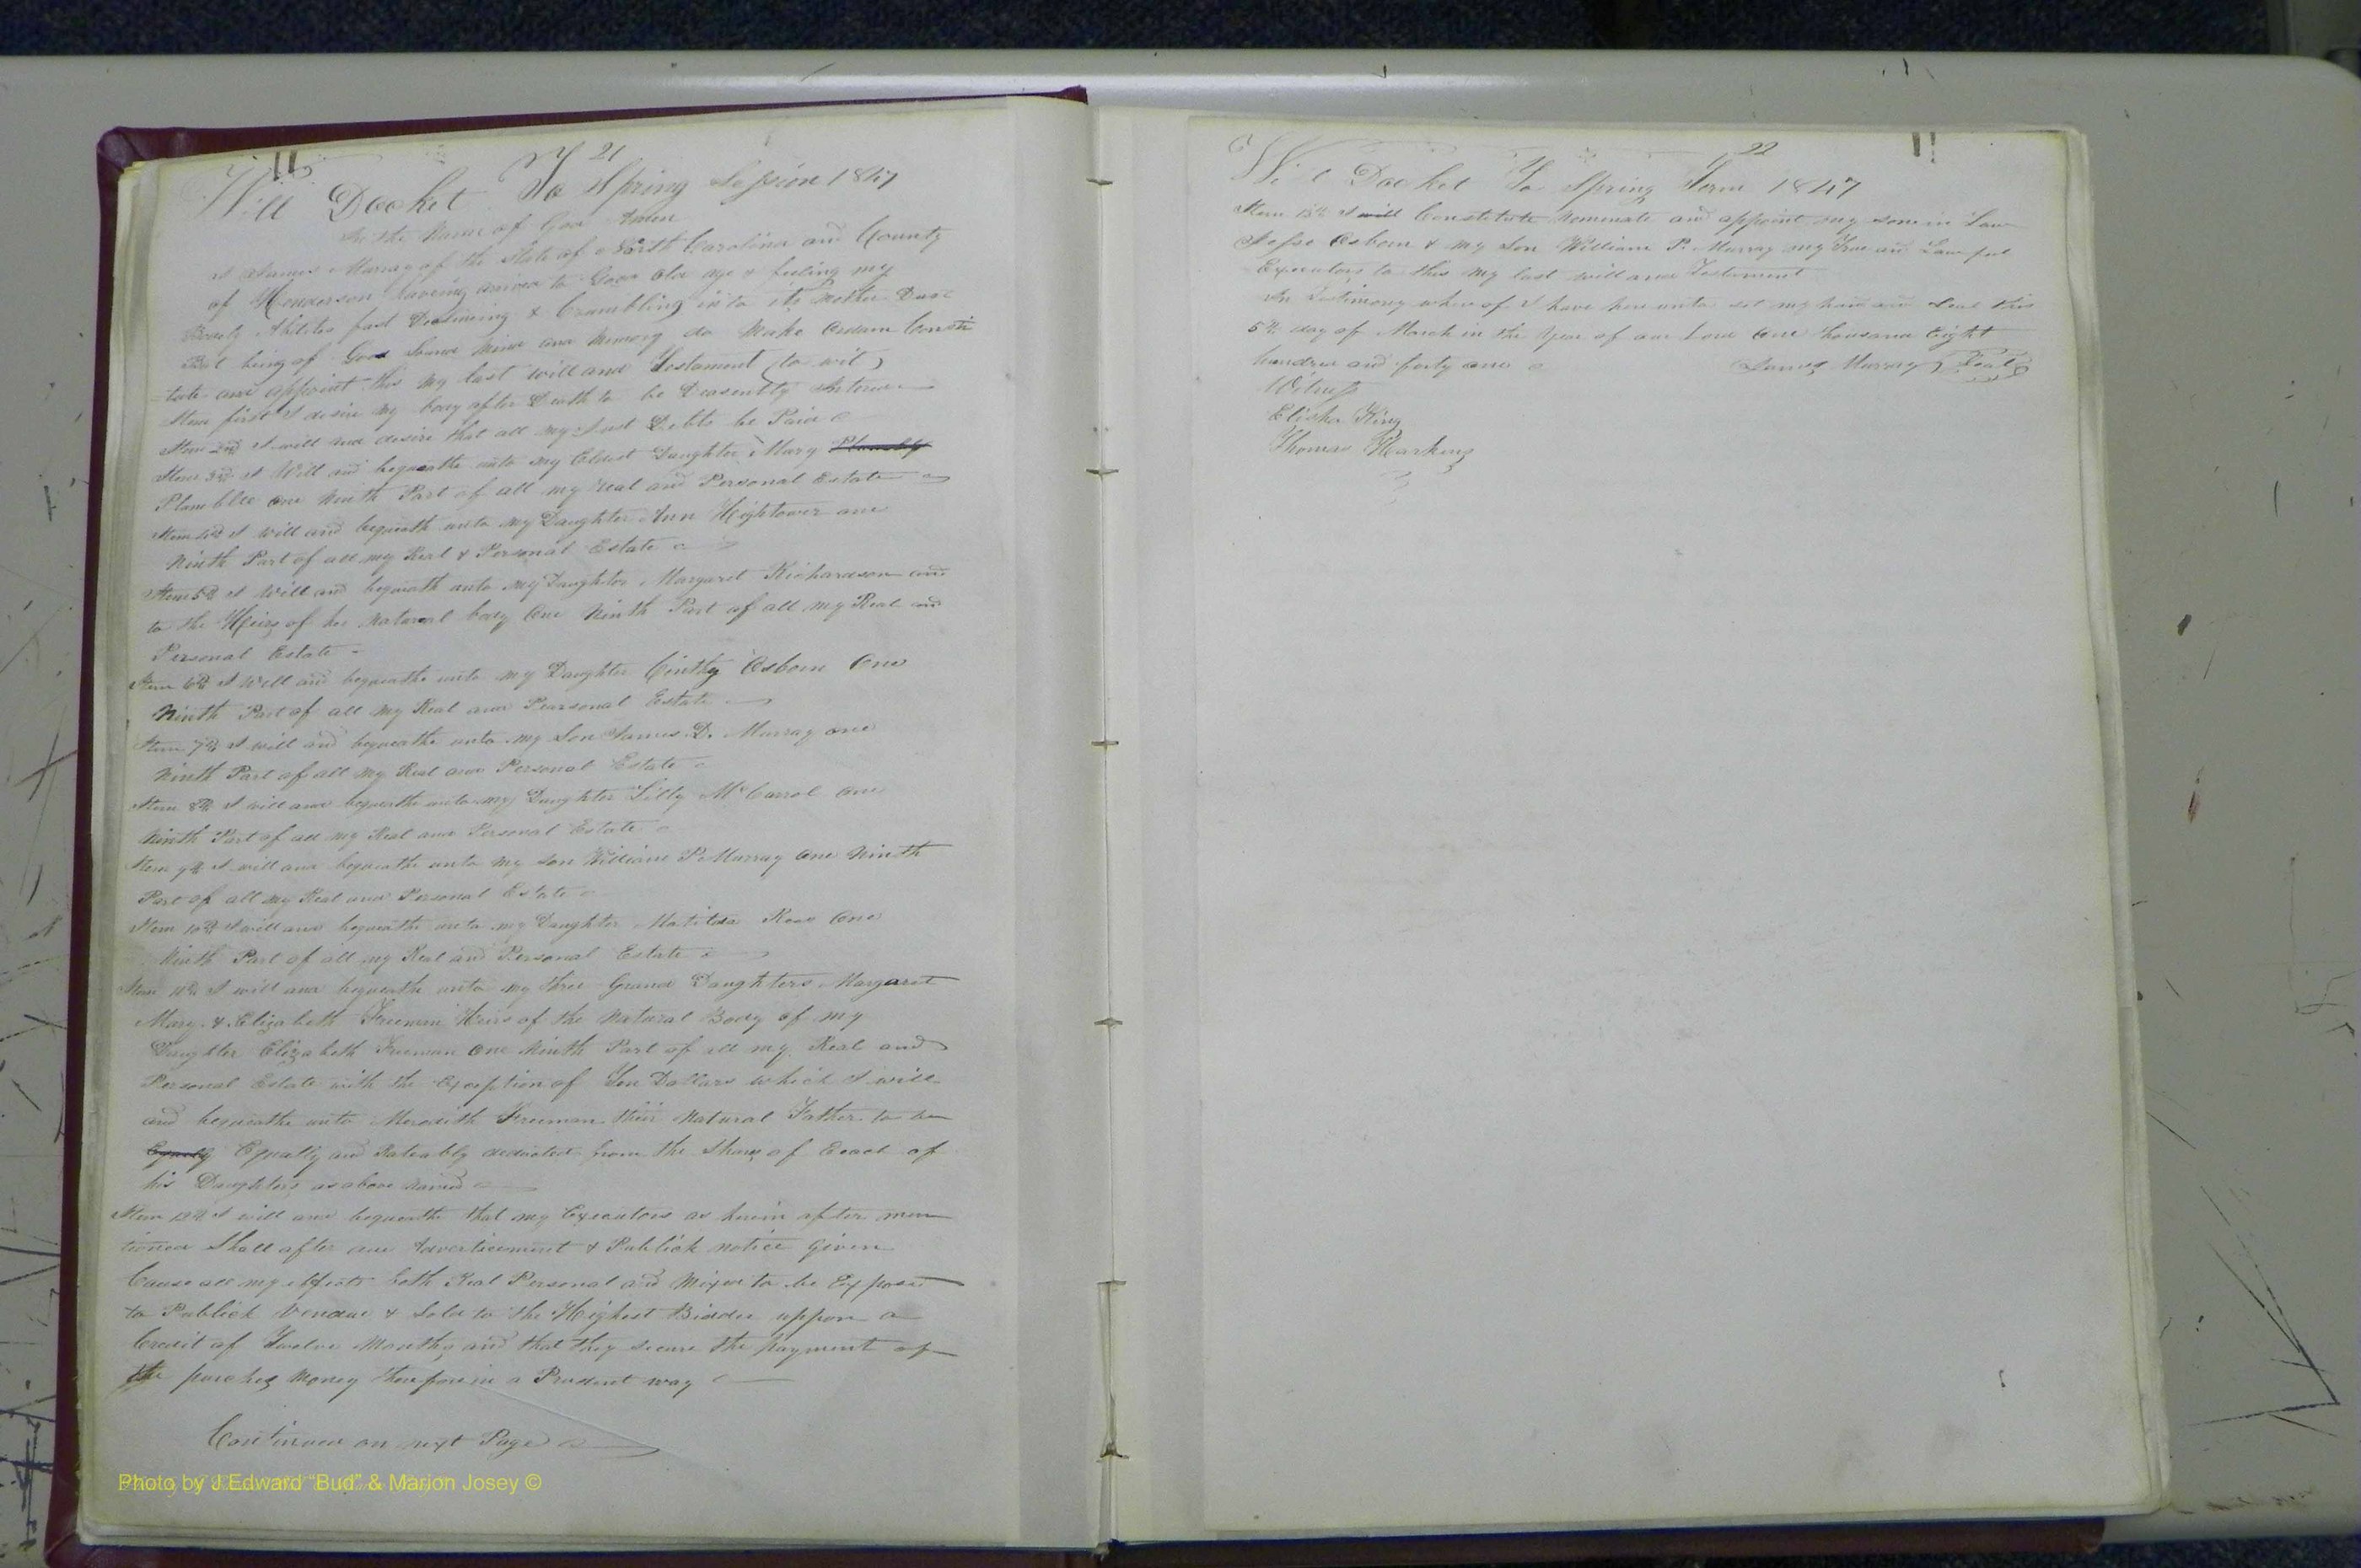 21
Will Docket To Spring Session 1847
In the Name of God Amen
I James Murray of the State of North Carolina and County
of Henderson haveing arived to Good Old age & feeling my
Bodily Abilites fast Declineing & Crumbling into its Mother Dust
But being of Good Sound Mind and Memory do Make Ordain Consti
=tute and appoint this my last will and Testament (to wit)
Item first I desire my body after Death to be Deasently Intered
Item 2nd I will and desire that all my Just Debts be Paid
Item 3rd I Will and bequeathe unto my Eldest Daughter Mary
Plumblee one Ninth Part of all my real and Personal Estate
Item 4th I will and bequeath unto my Daughter Ann Hightower one
Ninth Part of all my Real & Personal Estate
Item 5th I Will and bequeath unto my Daughter Margaret Richardson and
to the Heirs of her Natural body One Ninth Part of all my Real and
Personal Estate
Item 6th I Will and bequeathe unto my Daughter Cinthy Osborn One
Ninth Part of all my Real and Pearsonal Estate
Item 7th I will and bequeathe unto my Son James D. Murray one
Ninth Part of all my Real and Personal Estate
Item 8th I will and bequeathe unto my Daughter Silly McCarrol One
Ninth Part of all my Real and Personal Estate
Item 9th I will and bequeathe unto my Son William P. Murray One Ninth
Part of all my Real and Personal Estate
Item 10th I will and bequeathe unto my Daughter Matilda One
Ninth Part of all my Real and Personal Estate
Item 11th I will and bequeathe unto my three Grand Daughters Margaret
Mary & Elizabeth Freeman Heirs of the Natural Body of my
Daughter Elizabeth Freeman One Ninth Part of all my Real and
Personal Estate with the Exception of Ten Dollars which I will
and bequeathe unto Meredith Freeman their Natural Father to be
Equally Equally and Rateably deducted from the Shares of Each of
his Daughters as above named
Item 12th I will and bequeathe that my Executors as herein after men
tioned Shall after due Advertisement & Publick notice given
Cause all my effects both Real Personal and Mixed to be Exposed
to Publick Vendue & Sold to the Highest Bidder uppon a
Credit of Twelve Months and that they secure the payment of
the purches Money therefore in a Prudent way
Continued on next Page
Photo by J.Edward "Bud" & Marion Josey ©
22
Will Docket To Spring Term 1847
Item 13th I will Constitute Nominate and appoint my Son in Law
Jesse Osborn & my Son William P. Murray my True and Lawful
Executors to this my last will and Testament
In Testimony whereof I have here unto set my hand and Seal this
5th day of March in the Year of our Lord One thousand Eight
hundred and forty one James Murray (Seal)
Witness
Elisha King
Thomas Harkins